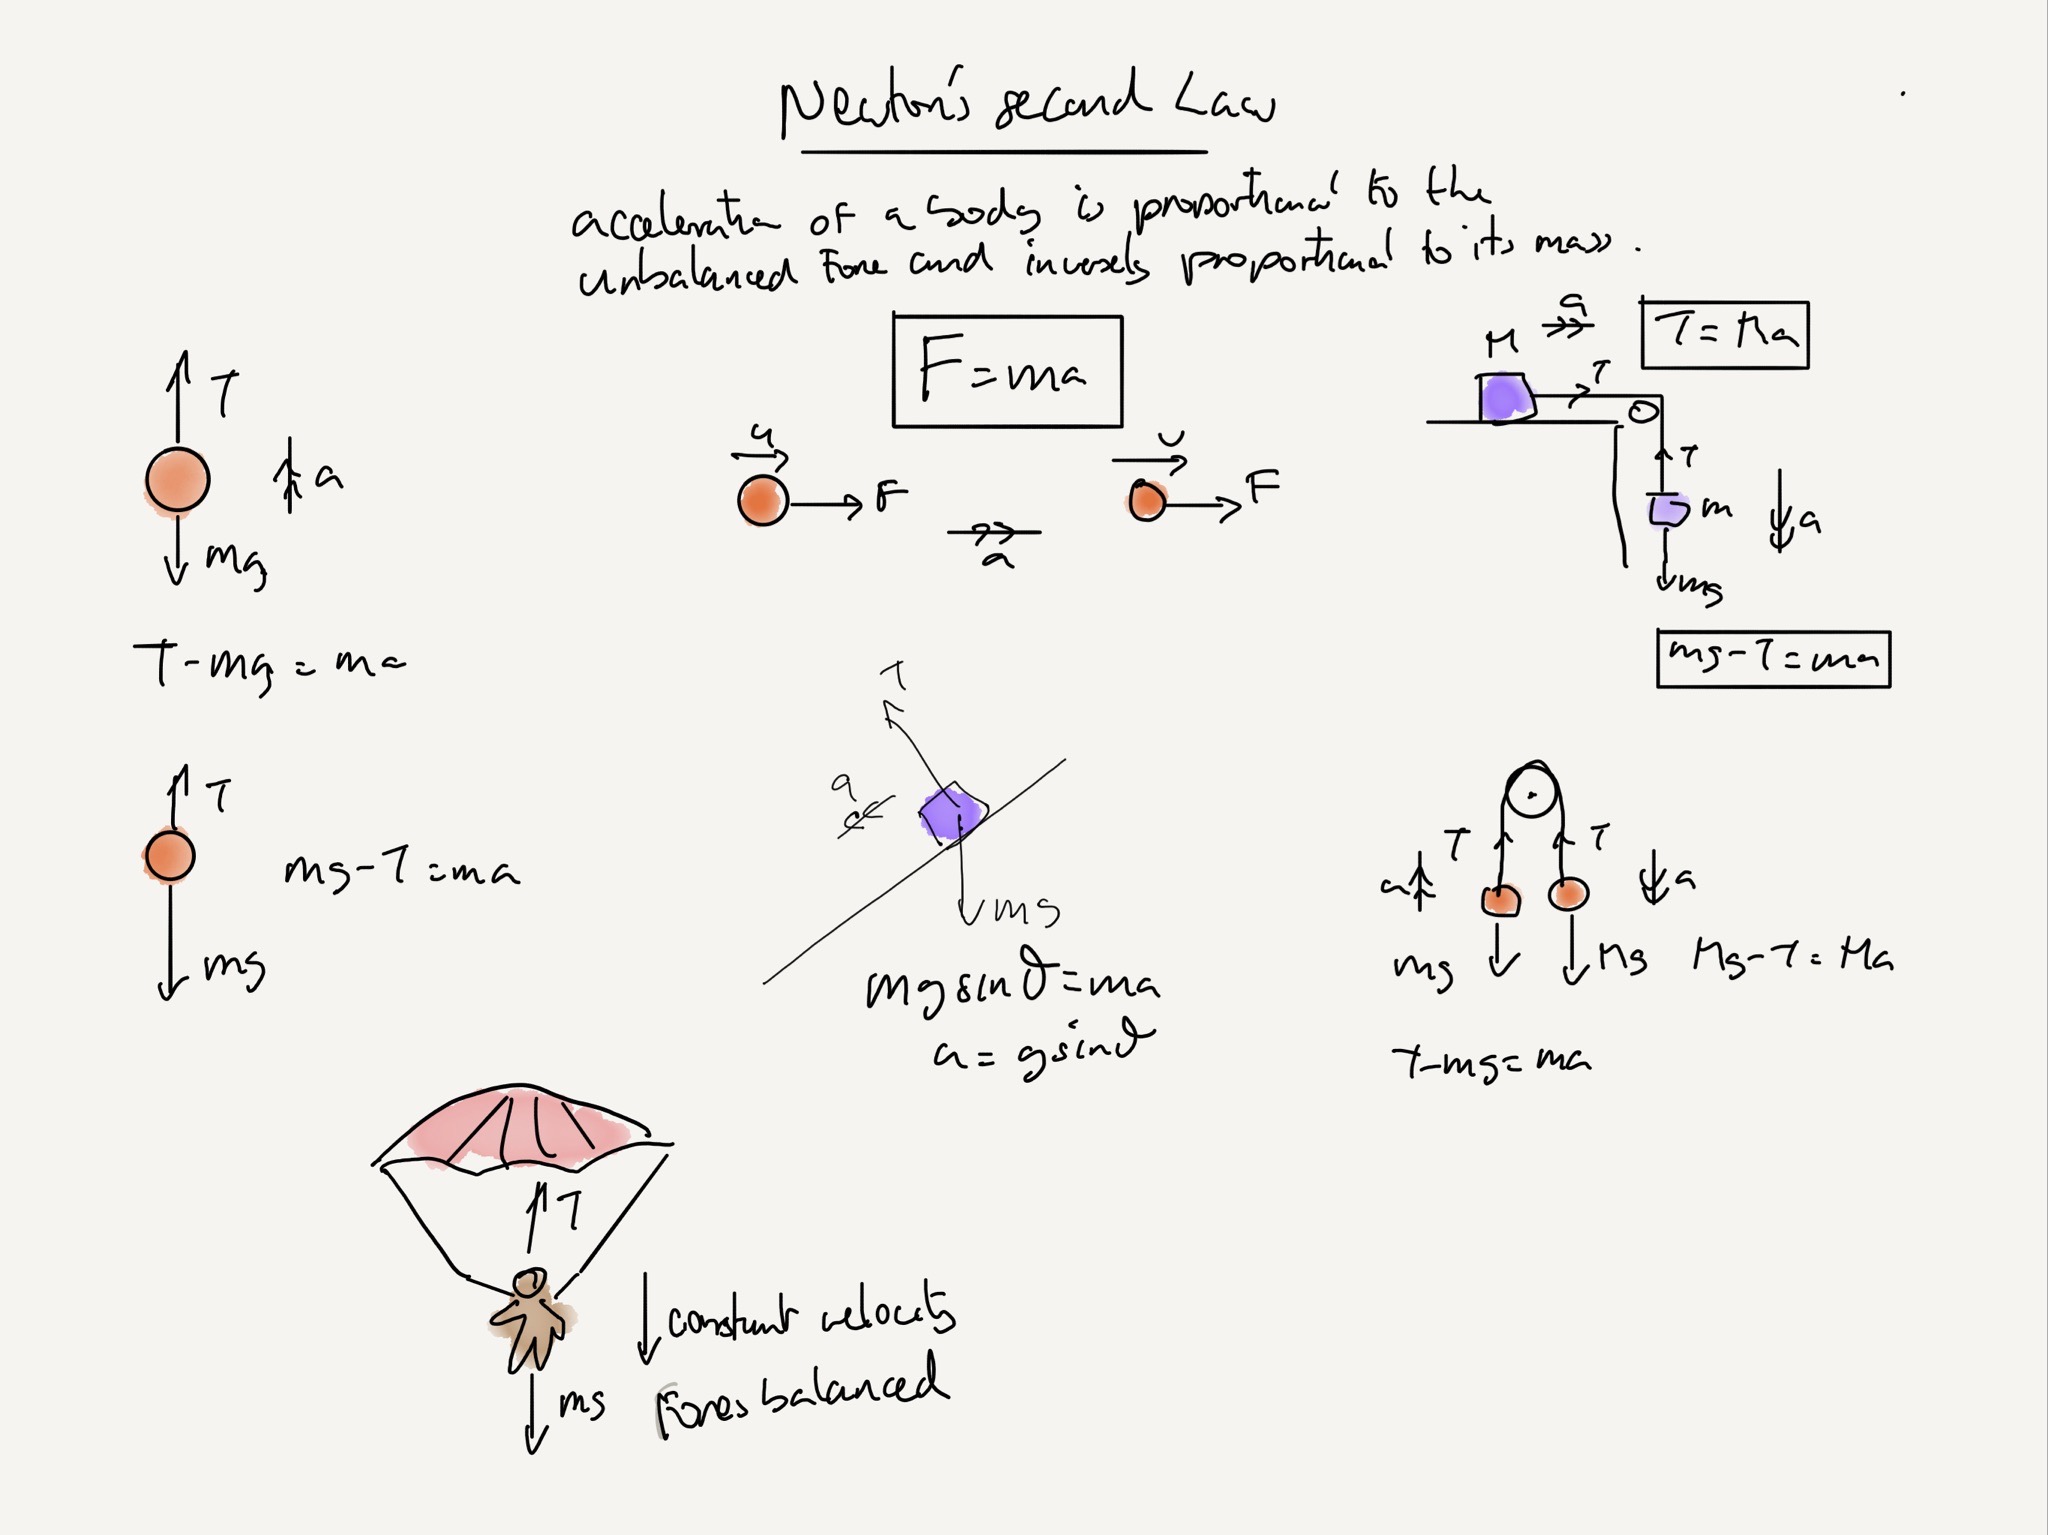 Newton's second Law
acceleration of a body is proportional to the
unbalanced Force and inversely proportional to its mass.
F = ma
a
T = Ma
M
T
T
a
mg
T - mg = ma
u
F
v
F
a
T
m
a
mg
mg - T = ma
T
mg - T = ma
mg
T
a
mg
mg sin θ = ma
a = g sin θ
T
T
a
a
mg
Mg
Mg - T = Ma
T - mg = ma
T
mg
constant velocity
Forces balanced